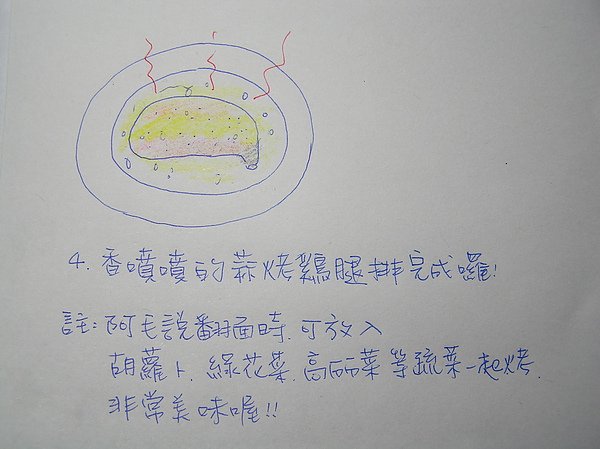 4. 香噴噴的蒜烤鷄腿排完成囉!
註: 阿毛說翻面時.可放入
胡蘿卜.綠花菜.高丽菜等蔬菜一起烤.
非常美味喔!!